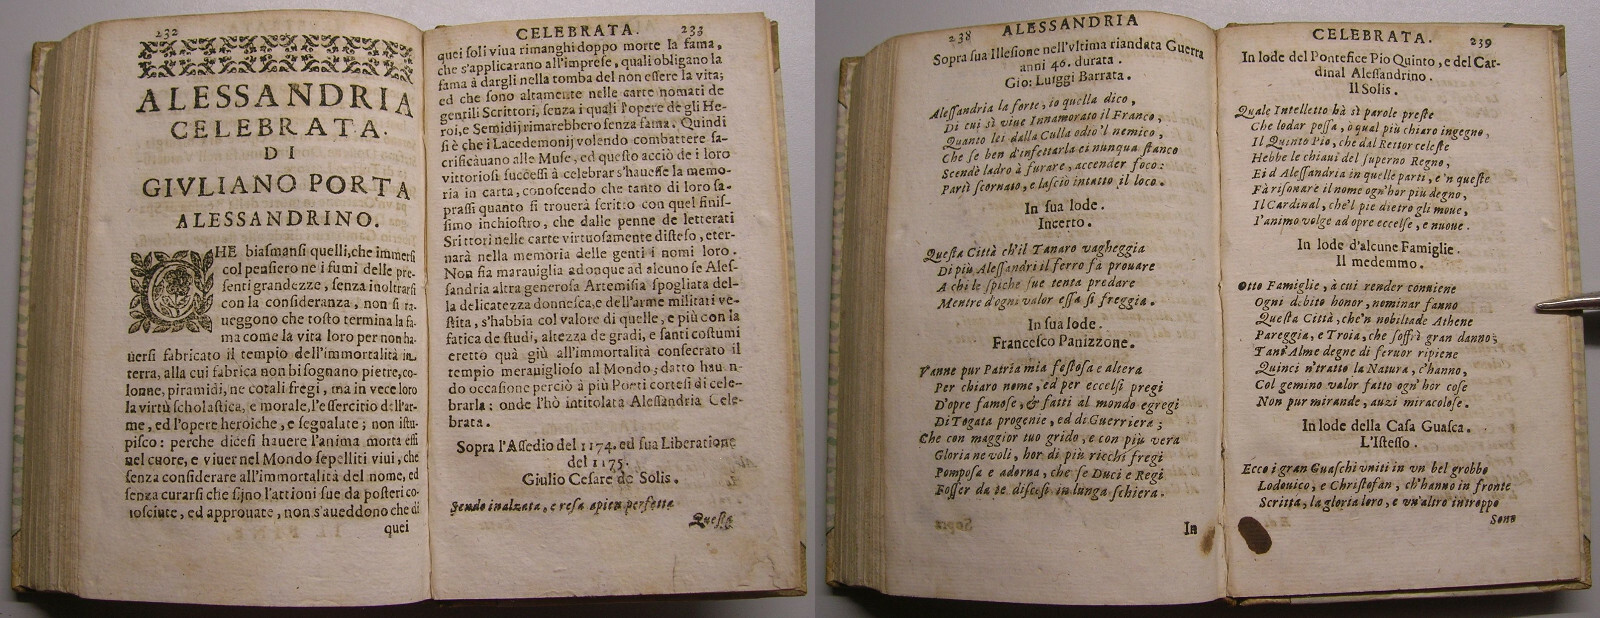 232
ALESSANDRIA
CELEBRATA.
DI
GIVLIANO PORTA
ALESSANDRINO.
CHE biasmansi quelli, che immersi
col pensiero ne i fumi delle pre-
senti grandezze, senza inoltrarsi
con la consideranza, non si ra-
ueggono che tosto termina la fa-
ma come la vita loro per non ha-
uersi fabricato il tempio dell'immortalità in
terra, alla cui fabrica non bisognano pietre, co-
lonne, piramidi, ne cotali fregi, ma in vece loro
la virtù scholastica, e morale, l'essercitio dell'ar-
me, ed l'opere heroiche, e segnalate; non istu-
pisco: perche dicesi hauere l'anima morta essi
nel cuore, e viuer nel Mondo sepelliti viui, che
senza considerare all'immortalità del nome, ed
senza curarsi che sijno l'attioni sue da posteri co-
nosciute, ed approuate, non s'aueddono che di
quei
CELEBRATA. 233
quei soli viua rimanghi doppo morte la fama,
che s'applicarano all'imprese, quali obligano la
fama à dargli nella tomba del non essere la vita;
ed che sono altamente nelle carte nomati de
gentili Scrittori, senza i quali l'opere de gli He-
roi, e Semidij rimarebbero senza fama. Quindi
si è che i Lacedemonij volendo combattere sa-
crificauano alle Muse, ed questo acciò de i loro
vittoriosi successi à celebrar s'hauesse la memo-
ria in carta, conoscendo che tanto di loro sa-
prassi quanto si trouerà scritto con quel finis-
simo inchiostro, che dalle penne de letterati
Scrittori nelle carte virtuosamente disteso, eter-
narà nella memoria delle genti i nomi loro.
Non fia marauiglia adonque ad alcuno se Ales-
sandria altra generosa Artemisia spogliata del-
la delicatezza donnesca, e dell'arme militari ve-
stita, s'habbia col valore di quelle, e più con la
fatica de studi, altezza de gradi, e santi costumi
eretto quà giù all'immortalità consecrato il
tempio merauiglioso al Mondo; datto hauen-
do occasione perciò à più Poeti cortesi di cele-
brarla: onde l'hò intitolata Alessandria Cele-
brata.
Sopra l'Assedio del 1174. ed sua Liberatione
del 1175.
Giulio Cesare de Solis.
Sendo inalzata, e resa apien perfetta
Questa
238 ALESSANDRIA
Sopra sua Illesione nell'vltima riandata Guerra
anni 46. durata.
Gio: Luiggi Barrata.
Alessandria la forte, io quella dico,
Di cui sì viue Innamorato il Franco,
Quanto lei dalla Culla odio'l nemico,
Che se ben d'infettarla ei nunqua stanco
Scendè ladro à furare, accender foco:
Partì scornato, e lasciò intatto il loco.
In sua lode.
Incerto.
Questa Città ch'il Tanaro vagheggia
Di più Alessandri il ferro fa prouare
A chi le spiche sue tenta predare
Mentre d'ogni valor essa si freggia.
In sua lode.
Francesco Panizzone.
Vanne pur Patria mia festosa e altera
Per chiaro nome, ed per eccelsi pregi
D'opre famose, & fatti al mondo egregi
Di Togata progenie, ed di Guerriera;
Che con maggior tuo grido, e con più vera
Gloria ne voli, hor di più ricchi fregi
Pomposa e adorna, che se Duci e Regi
Fosser da te discesi in lunga schiera.
In
CELEBRATA. 239
In lode del Pontefice Pio Quinto, e del Car-
dinal Alessandrino.
Il Solis.
Quale Intelletto hà sì parole preste
Che lodar possa, o qual più chiaro ingegno,
Il Quinto Pio, che dal Rettor celeste
Hebbe le chiaui del superno Regno,
Ei d'Alessandria in quelle parti, e'n queste
Fà risonare il nome ogn'hor più degno,
Il Cardinal, che'l piè dietro gli moue,
L'animo volge ad opre eccelse, e nuoue.
In lode d'alcune Famiglie.
Il medemmo.
Otto Famiglie, à cui render conuiene
Ogni debito honor, nominar fanno
Questa Città, che'n nobiltade Athene
Pareggia, e Troia, che soffrì gran danno;
Tant'Alme degne di feruor ripiene
Quinci n'tratto la Natura, c'hanno,
Col gemino valor fatto ogn'hor cose
Non pur mirande, anzi miracolose.
In lode della Casa Guasca.
L'Istesso.
Ecco i gran Guaschi vniti in vn bel grobbo
Lodouico, e Christofan, ch'hanno in fronte
Scritta, la gloria loro, e vn'altro introppo
Sono